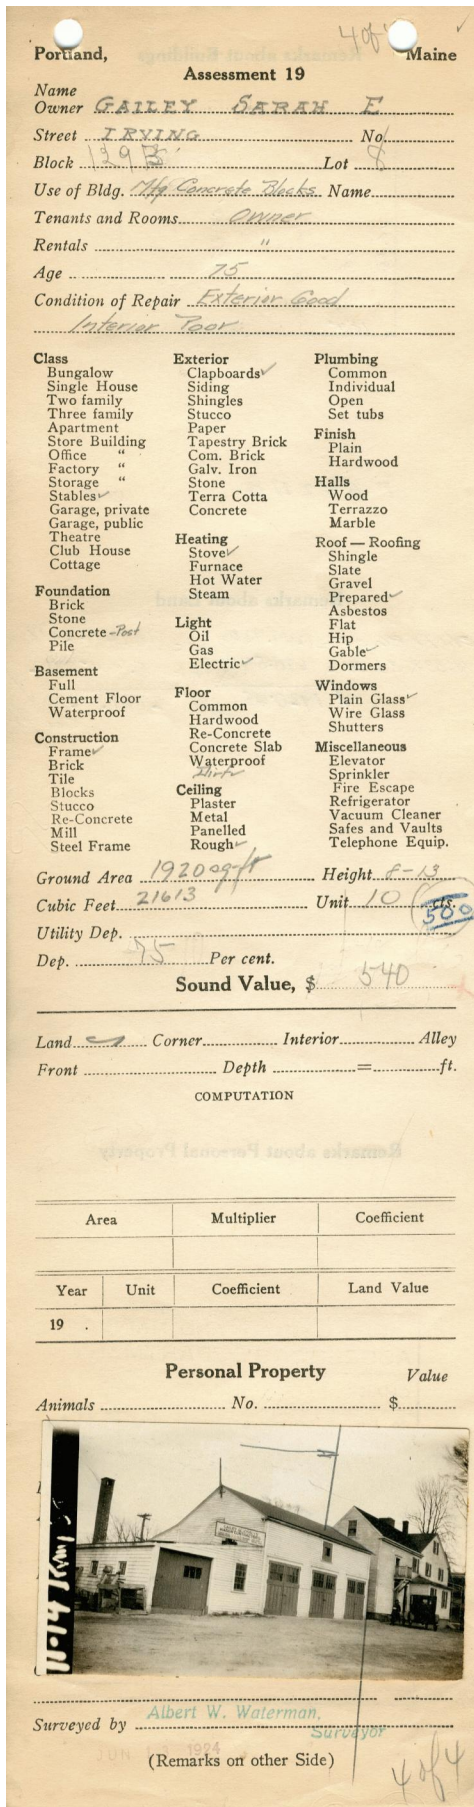 4 of
Portland, Maine
Assessment 19
Name
Owner GAILEY SARAH E
Street IRVING No.
Block 129B Lot 8
Use of Bldg. Mfg Concrete Blocks Name
Tenants and Rooms owner
Rentals "
Age 75
Condition of Repair Exterior Good
Interior Poor
Class
Bungalow
Single House
Two family
Three family
Apartment
Store Building
Office "
Factory "
Storage "
Stables ✓
Garage, private
Garage, public
Theatre
Club House
Cottage
Foundation
Brick
Stone
Concrete - Post
Pile
Basement
Full
Cement Floor
Waterproof
Construction
Frame ✓
Brick
Tile
Blocks
Stucco
Re-Concrete
Mill
Steel Frame
Exterior
Clapboards ✓
Siding
Shingles
Stucco
Paper
Tapestry Brick
Com. Brick
Galv. Iron
Stone
Terra Cotta
Concrete
Heating
Stove ✓
Furnace
Hot Water
Steam
Light
Oil
Gas
Electric ✓
Floor
Common
Hardwood
Re-Concrete
Concrete Slab
Waterproof
Dirt ✓
Ceiling
Plaster
Metal
Panelled
Rough ✓
Plumbing
Common
Individual
Open
Set tubs
Finish
Plain
Hardwood
Halls
Wood
Terrazzo
Marble
Roof — Roofing
Shingle
Slate
Gravel
Prepared ✓
Asbestos
Flat
Hip
Gable ✓
Dormers
Windows
Plain Glass ✓
Wire Glass
Shutters
Miscellaneous
Elevator
Sprinkler
Fire Escape
Refrigerator
Vacuum Cleaner
Safes and Vaults
Telephone Equip.
Ground Area 1920 sq-ft Height 8-13
Cubic Feet 21613 Unit 10 cts.
500
Utility Dep.
Dep. 75 Per cent.
Sound Value, $ 540
Land ✓ Corner Interior Alley
Front Depth = ft.
COMPUTATION
Area Multiplier Coefficient
Year Unit Coefficient Land Value
19 .
Personal Property Value
Animals No. $
Surveyed by Albert W. Waterman,
Surveyor
1924
(Remarks on other Side)
4 of 4